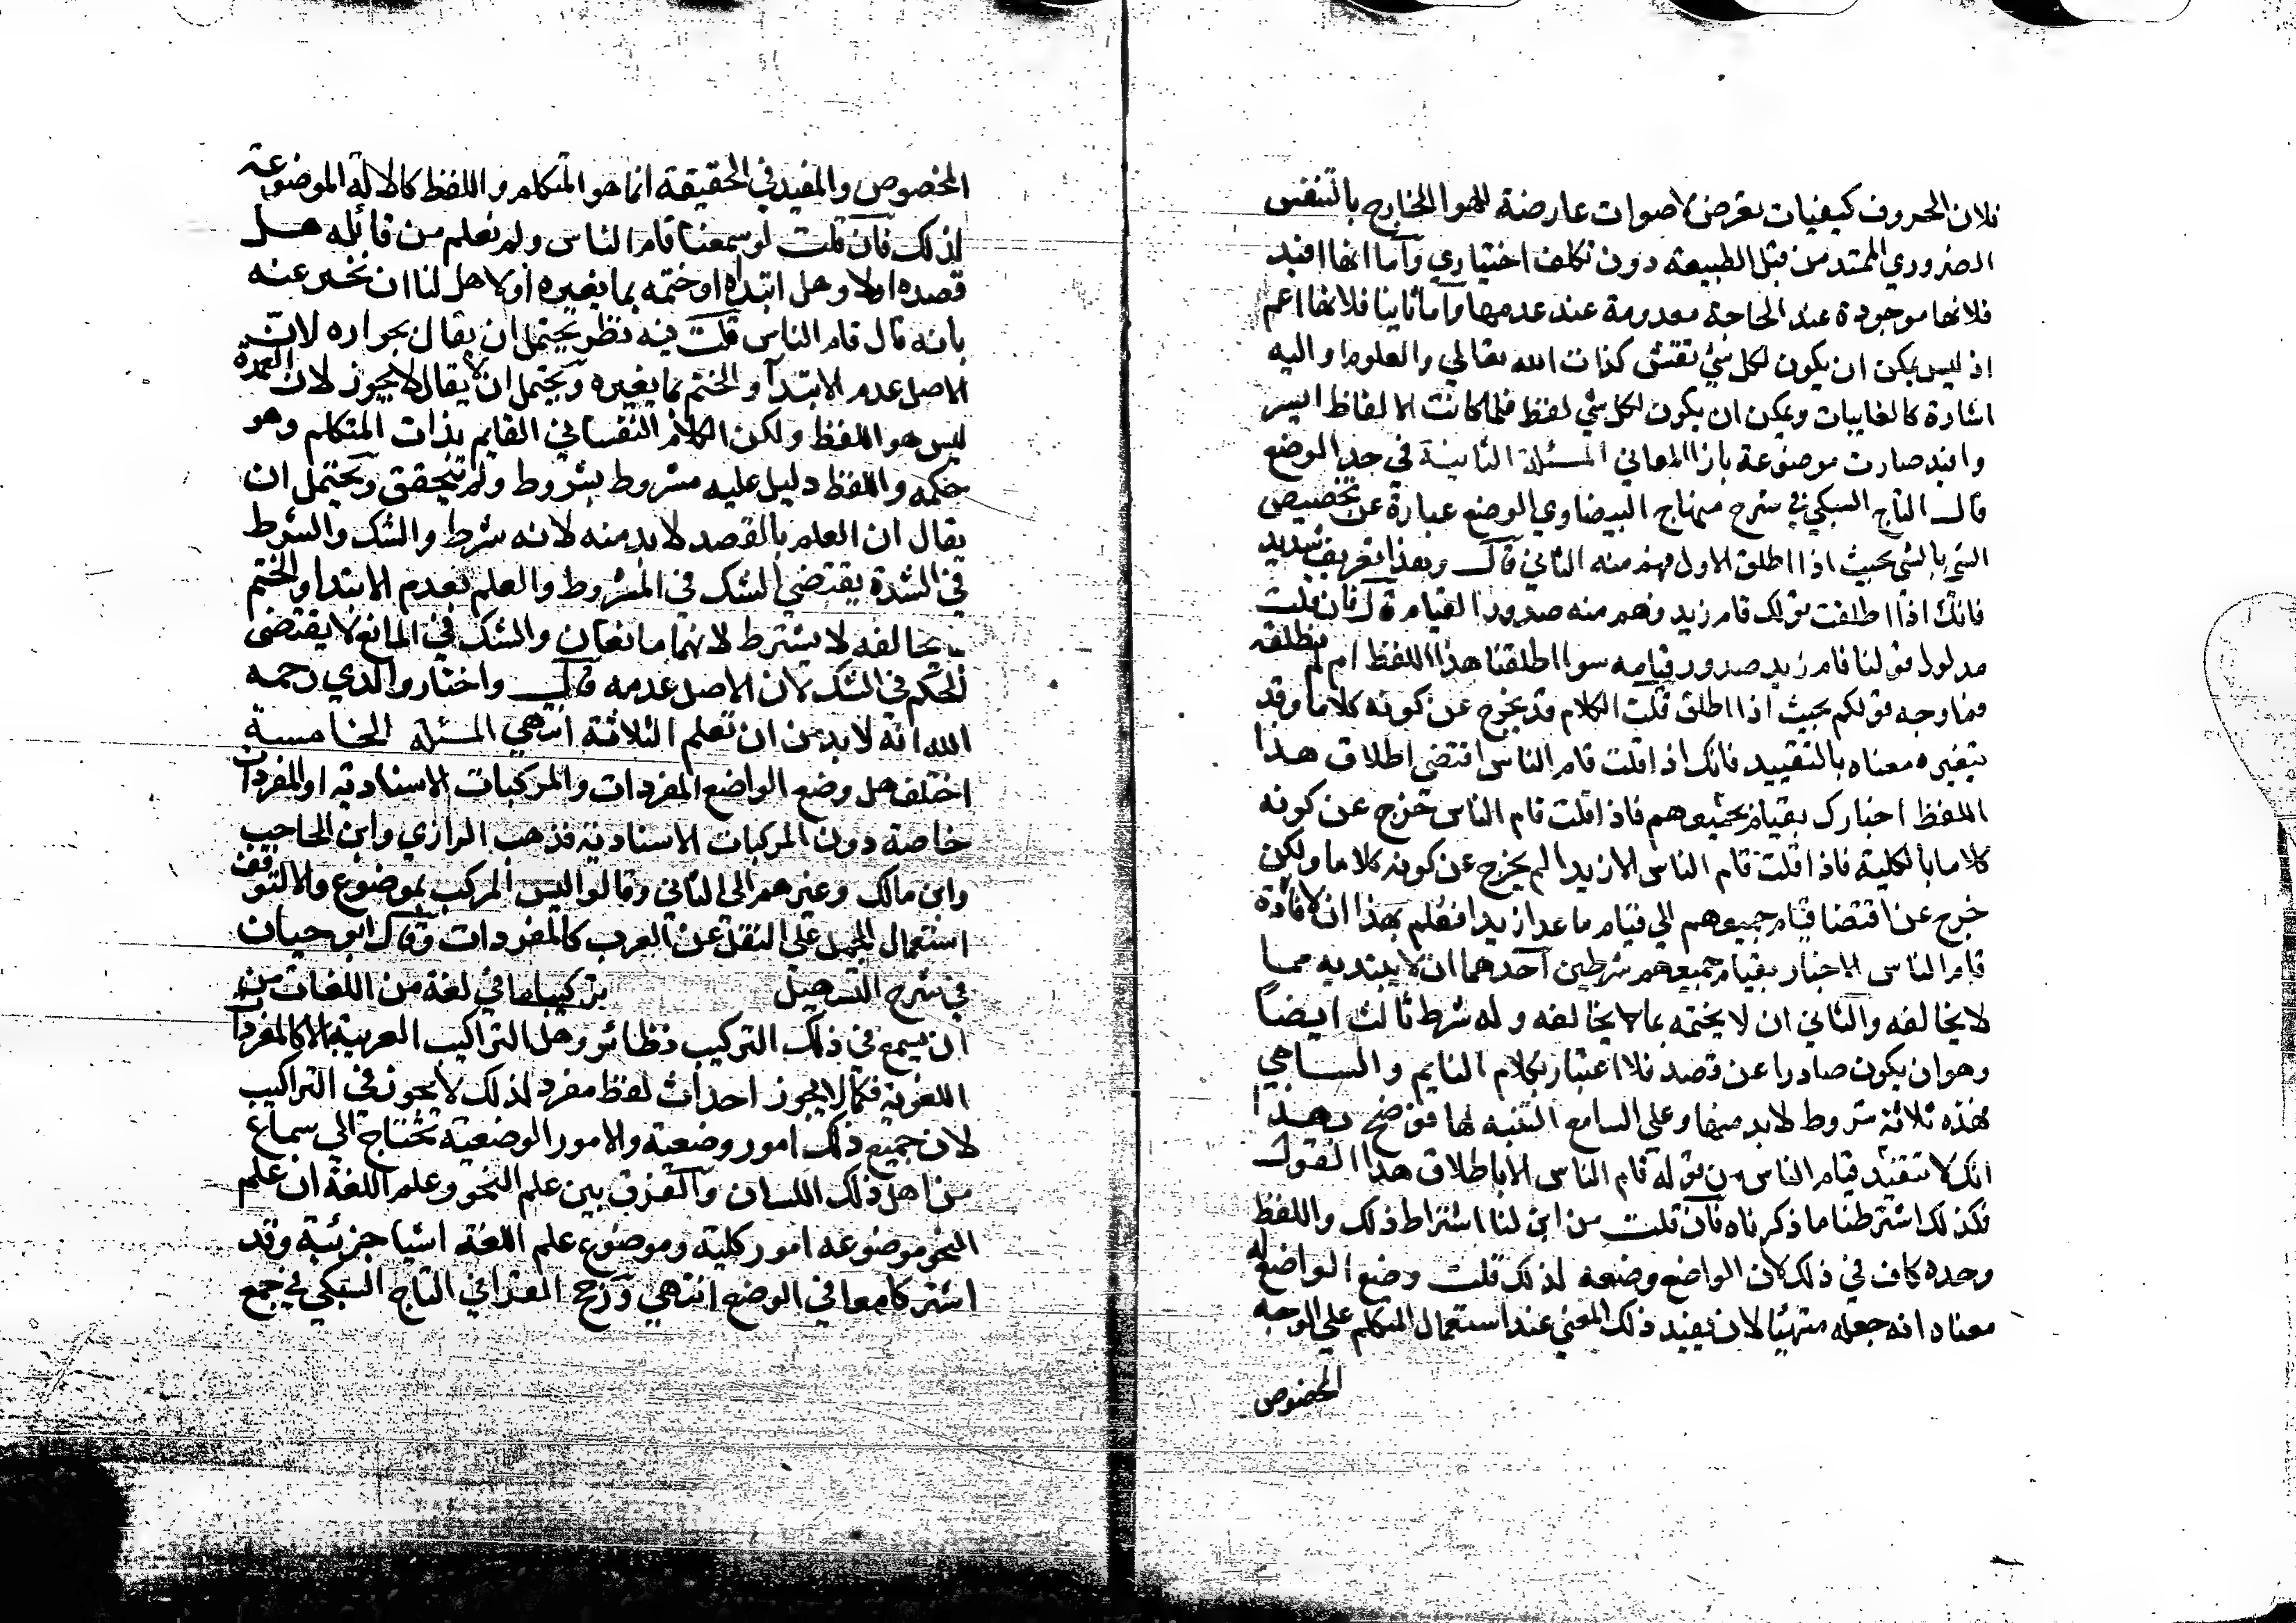 فلان الحروف كيفيات تعرض لاصوات عارضة للهوا الخارج بالتنفس
الضروري الممتد من قبل الطبيعة دون تكلف اختياري واما انها افيد
فلانها موجودة عند الحاجة معدومة عند عدمها واما ثانيا فلانها اعم
اذ ليس يمكن ان يكون لكل شي نقش كذات الله تعالي والعلوم او اليه
اشارة كالغايبات ويمكن ان يكون لكل شي لفظ فلما كانت الالفاظ ايسر
وافيد صارت موضوعة بازا المعاني المسئلة الثانية في حد الوضع
قال التاج السبكي في شرح منهاج البيضاوي الوضع عبارة عن تخصيص
الشي بالشي بحيث اذا اطلق الاول فهم منه الثاني قال وهذا تعريف سديد
فانك اذا اطلقت قولك قام زيد فهم منه صدور القيام قال فان قلت
مدلول قولنا قام زيد صدور قيامه سوا اطلقنا هذا اللفظ ام لم نطلقه
فما وجه قولكم بحيث اذا اطلق قلت الكلام قد يخرج عن كونه كلاما وقد
يتغير معناه بالتقييد فانك اذا قلت قام الناس اقتضي اطلاق هذا
اللفظ اخبارك بقيام جميعهم فاذا قلت ان قام الناس خرج عن كونه
كلاما بالكلية فاذا قلت قام الناس الا زيدا لم يخرج عن كونه كلاما ولكن
خرج عن اقتضا قيام جميعهم الي قيام ما عدا زيدا فعلم بهذا ان لافادة
قام الناس الاخبار بقيام جميعهم شرطين احدهما ان لا يبتديه بما
لا يخالفه والثاني ان لا يختمه بما لا يخالفه وله شرط ثالث ايضا
وهو ان يكون صادرا عن قصد فلا اعتبار بكلام النايم والساهي
فهذه ثلاثة شروط لابد منها وعلي السامع التنبه لها فوضح بهذا
انك لا تستفيد قيام الناس من قوله قام الناس الا باطلاق هذا القول
فكذلك اشترطنا ما ذكرناه فان قلت من اين لنا اشتراط ذلك واللفظ
وحده كاف في ذلك لان الواضع وضعه لذلك قلت وضع الواضع له
معناه انه جعله متهيئا لان يفيد ذلك المعني عند استعمال المتكلم علي الوجه
المخصوص
المخصوص والمفيد في الحقيقة انما هو المتكلم واللفظ كالالة الموضوعة
لذلك فان قلت لو سمعنا قام الناس ولم نعلم من قائله هل
قصده ام لا وهل ابتداه او ختمه بما يغيره او لا هل لنا ان نخبر عنه
بانه قال قام الناس قلت فيه نظر يحتمل ان يقال بجوازه لان
الاصل عدم الابتدا والختم بما يغيره ويحتمل ان يقال لا يجوز لان العمدة
ليس هو اللفظ ولكن الكلام النفساني القايم بذات المتكلم وهو
حكمه واللفظ دليل عليه مشروط بشروط ولم تتحقق ويحتمل ان
يقال ان العلم بالقصد لابد منه لانه شرط والشك والشرط
في الشدة يقتضي الشك في المشروط والعلم بعدم الابتدا والختم
بما يخالفه لا يشترط لانهما مانعان والشك في المانع لا يقتضي
الحكم في الشك لان الاصل عدمه قال واختار والدي رحمه
الله انه لابد من ان تعلم الثلاثة انتهي المسئلة الخامسة
اختلف هل وضع الواضع المفردات والمركبات الاسنادية او المفردات
خاصة دون المركبات الاسنادية فذهب الرازي وابن الحاجب
وابن مالك وغيرهم الي الثاني وقالوا ليس المركب بموضوع والا لتوقف
استعمال الجمل علي النقل عن العرب كالمفردات وقال ابو حيان
في شرح التسهيل تركيبا ما في لغة من اللغات من غير
ان يسمع في ذلك التركيب نظائر وهل التراكيب العربية الا كالمفردات
اللغوية فكما لا يجوز احداث لفظ مفرد لذلك لا يجوز في التراكيب
لان جميع ذلك امور وضعية والامور الوضعية تحتاج الي سماع
من اهل ذلك اللسان والفرق بين علم النحو وعلم اللغة ان علم
النحو موضوعه امور كلية وموضوع علم اللغة اشيا جزئية وقد
اشتركا معا في الوضع انتهي ورجح القرافي التاج السبكي في جمع